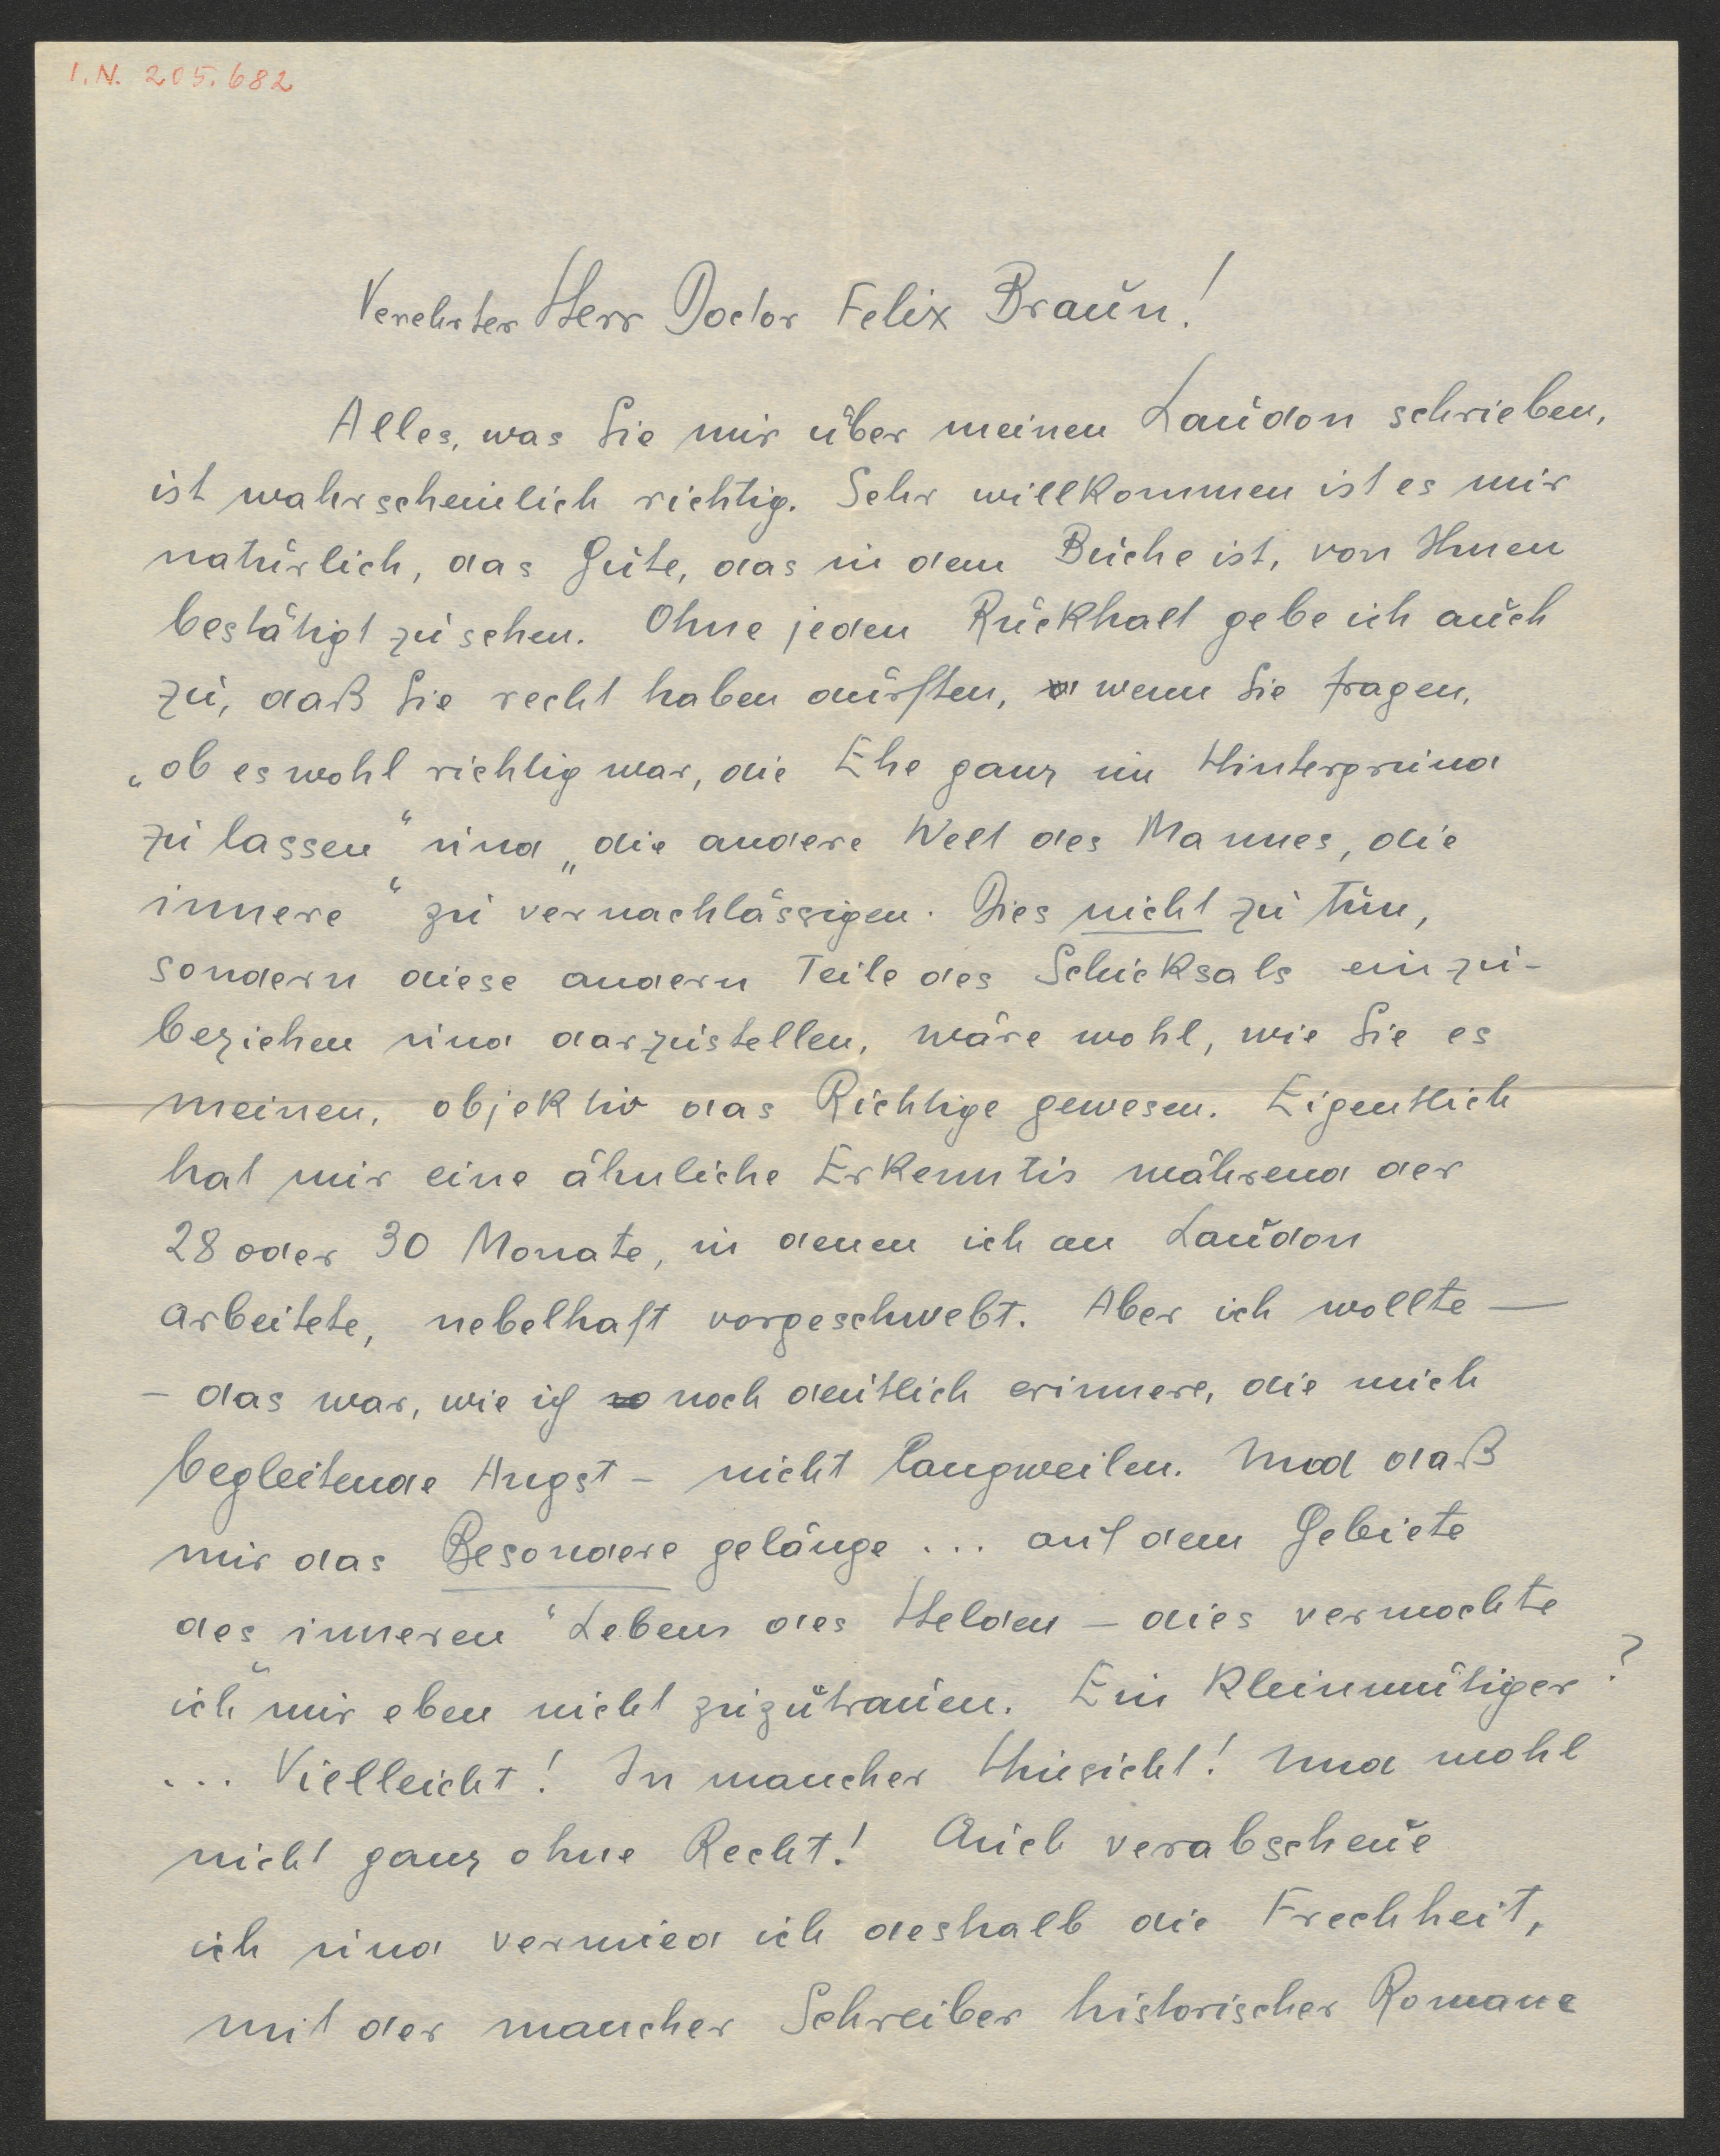 I.N. 205.682
Verehrter Herr Doctor Felix Braun!
Alles, was Sie mir über meinen Laudon schrieben,
ist wahrscheinlich richtig. Sehr willkommen ist es mir
natürlich, das Gute, das in dem Buche ist, von Ihnen
bestätigt zu sehen. Ohne jeden Rückhalt gebe ich auch
zu, daß Sie recht haben dürften, wenn Sie fragen,
„ob es wohl richtig war, die Ehe ganz im Hintergrund
zu lassen“ und „die andere Welt des Mannes, die
innere“ zu vernachlässigen. Dies nicht zu tun,
sondern diese andern Teile des Schicksals einzu-
beziehen und darzustellen, wäre wohl, wie Sie es
meinen, objektiv das Richtige gewesen. Eigentlich
hat mir eine ähnliche Erkenntis während der
28 oder 30 Monate, in denen ich an Laudon
arbeitete, nebelhaft vorgeschwebt. Aber ich wollte —
– das war, wie ich noch deutlich erinnere, die mich
begleitende Angst – nicht langweilen. Und daß
mir das Besondere gelänge ... auf dem Gebiete
des inneren Lebens des Helden – dies vermochte
ich mir eben nicht zuzutrauen. Ein Kleinmütiger?
... Vielleicht! In mancher Hinsicht! Und wohl
nicht ganz ohne Recht! Auch verabscheue
ich und vermied ich deshalb die Frechheit,
mit der mancher Schreiber historischer Romane